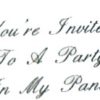 You're Invite
To A Party
In My Pan